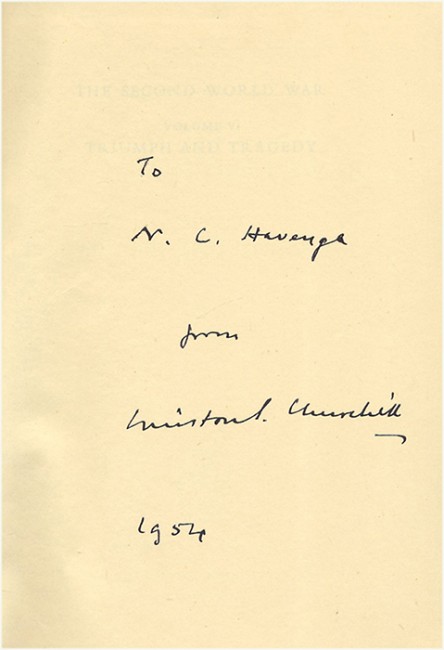 THE SECOND WORLD WAR
VOLUME VI
TRIUMPH AND TRAGEDY
To
N. C. Havenga
from
Winston S. Churchill
1954